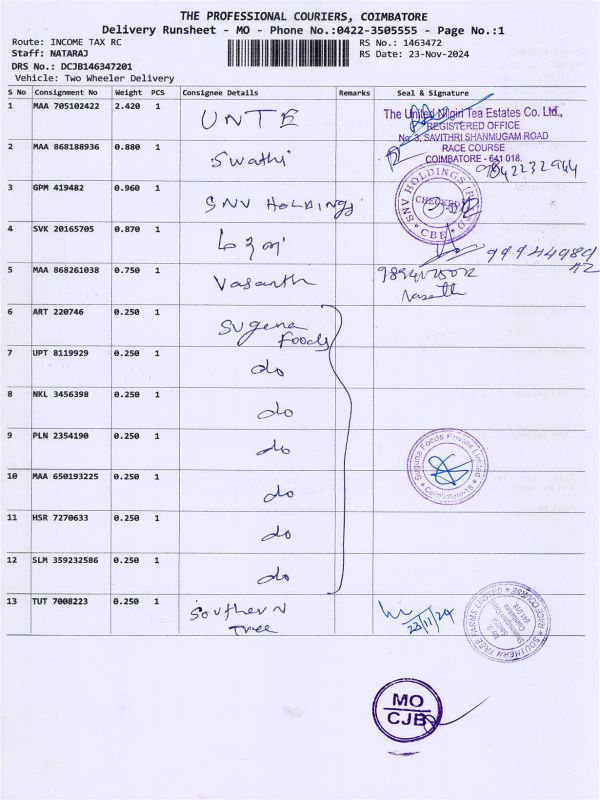 THE PROFESSIONAL COURIERS, COIMBATORE
Delivery Runsheet - MO - Phone No.:0422-3505555 - Page No.:1
Route: INCOME TAX RC
RS No.: 1463472
Staff: NATARAJ
RS Date: 23-Nov-2024
DRS No.: DCJB146347201
Vehicle: Two Wheeler Delivery
S No Consignment No Weight PCS Consignee Details Remarks Seal & Signature
1 MAA 705102422 2.420 1 UNTE
The United Nilgiri Tea Estates Co. Ltd.,
REGISTERED OFFICE
No. 3, SAVITHRI SHANMUGAM ROAD
RACE COURSE
COIMBATORE - 641 018.
2 MAA 868188936 0.880 1 Swathi
9842232944
3 GPM 419482 0.960 1 SNV HOLDINGS
SNV HOLDINGS
CHECKED
CBE
4 SVK 20165705 0.870 1
5 MAA 868261038 0.750 1 Vasanth
Vasanth
6 ART 220746 0.250 1 Suguna Foods
7 UPT 8119929 0.250 1 do
8 NKL 3456398 0.250 1 do
9 PLN 2354190 0.250 1 do
Suguna Foods Private Limited
Coimbatore-18
10 MAA 650193225 0.250 1 do
11 HSR 7270633 0.250 1 do
12 SLM 359232586 0.250 1 do
13 TUT 7008223 0.250 1 Southern Tree
23/11/24
SOUTHERN TREE FARMS LIMITED
RACE COURSE
MO
CJB